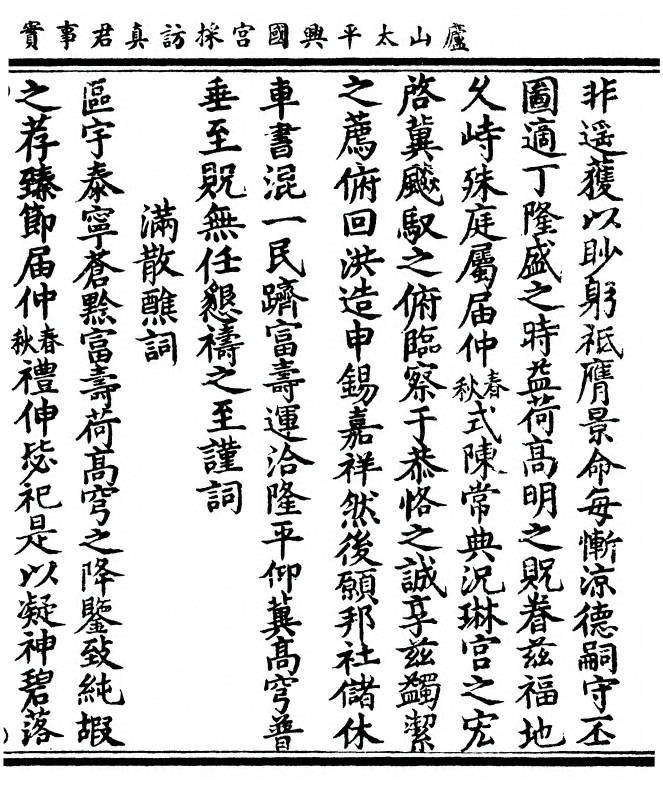 廬山太平興國宮採訪真君事實
非遥獲以眇躬祗膺景命每慚凉德嗣守丕
圖適丁隆盛之時益荷高明之貺眷兹福地
久峙殊庭屬届仲春秋式陳常典況琳宫之宏
啓冀飈馭之俯臨察于恭恪之誠享兹蠲潔
之薦俯回洪造申錫嘉祥然後願邦社儲休
車書混一民躋富壽運洽隆平仰冀高穹普
垂至貺無任懇禱之至謹詞
滿散醮詞
區宇泰寧蒼黔富壽荷高穹之降鑒致純嘏
之荐臻節届仲春秋禮伸毖祀是以凝神碧落